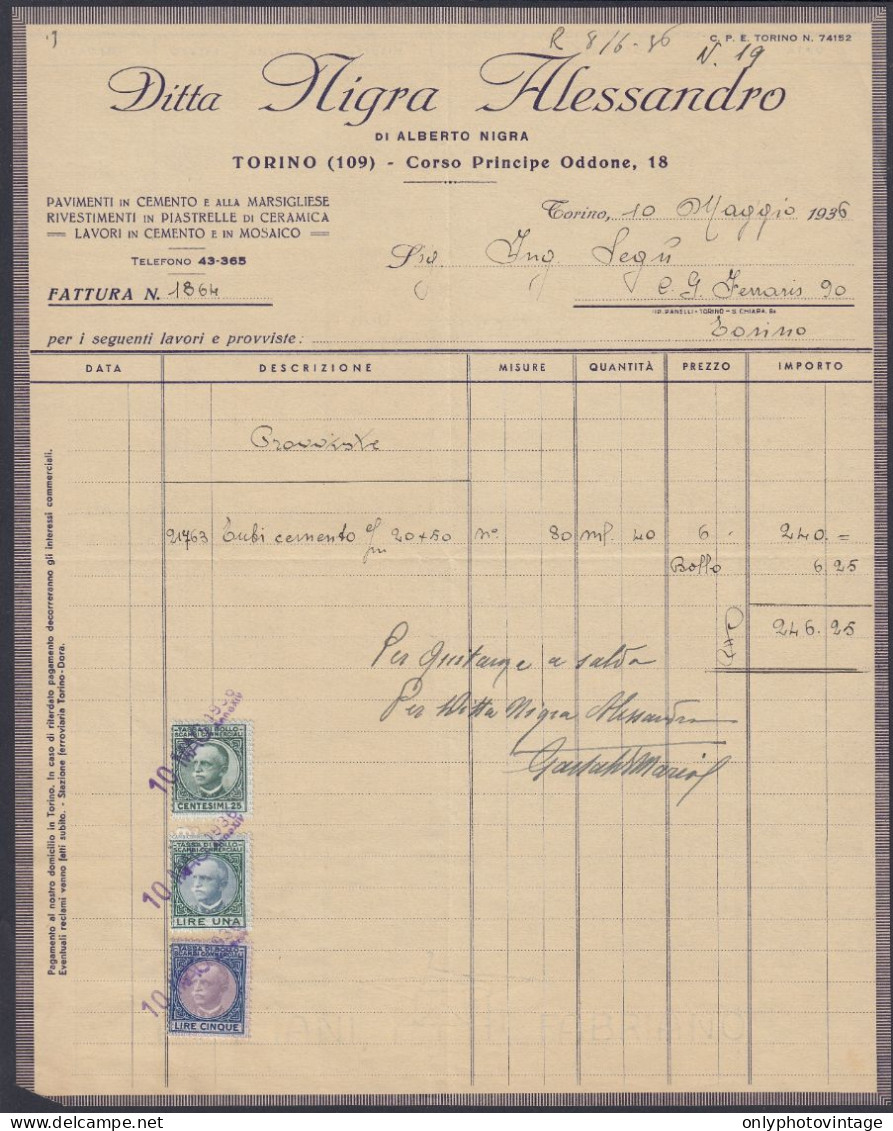 R 8/6-36
C. P. E. TORINO N. 74152
N. 19
Ditta Nigra Alessandro
DI ALBERTO NIGRA
TORINO (109) - Corso Principe Oddone, 18
PAVIMENTI IN CEMENTO E ALLA MARSIGLIESE
RIVESTIMENTI IN PIASTRELLE DI CERAMICA
LAVORI IN CEMENTO E IN MOSAICO
TELEFONO 43-365
FATTURA N. 1864
Torino, 10 Maggio 1936
Sig. Ing. Segù
C. G. Ferraris 90
TIP. PANELLI - TORINO - S. CHIARA, 5a
Torino
per i seguenti lavori e provviste:
DATA DESCRIZIONE MISURE QUANTITÀ PREZZO IMPORTO
Provviste
21763 Tubi cemento c/m 20+50 n° 80 ml. 40 6 - 240. =
Bollo 6 25
246.25
Per Quitanza a saldo
Per Ditta Nigra Alessandro
Pagamento al nostro domicilio in Torino. In caso di ritardato pagamento decorreranno gli interessi commerciali.
Eventuali reclami vanno fatti subito. - Stazione ferroviaria Torino-Dora.
TASSA DI BOLLO
SCAMBI COMMERCIALI
CENTESIMI 25
10 MAG 1936
TASSA DI BOLLO
SCAMBI COMMERCIALI
LIRE UNA
10 MAG 1936
TASSA DI BOLLO
SCAMBI COMMERCIALI
LIRE CINQUE
10 MAG 1936
delcampe.net
onlyphotovintage